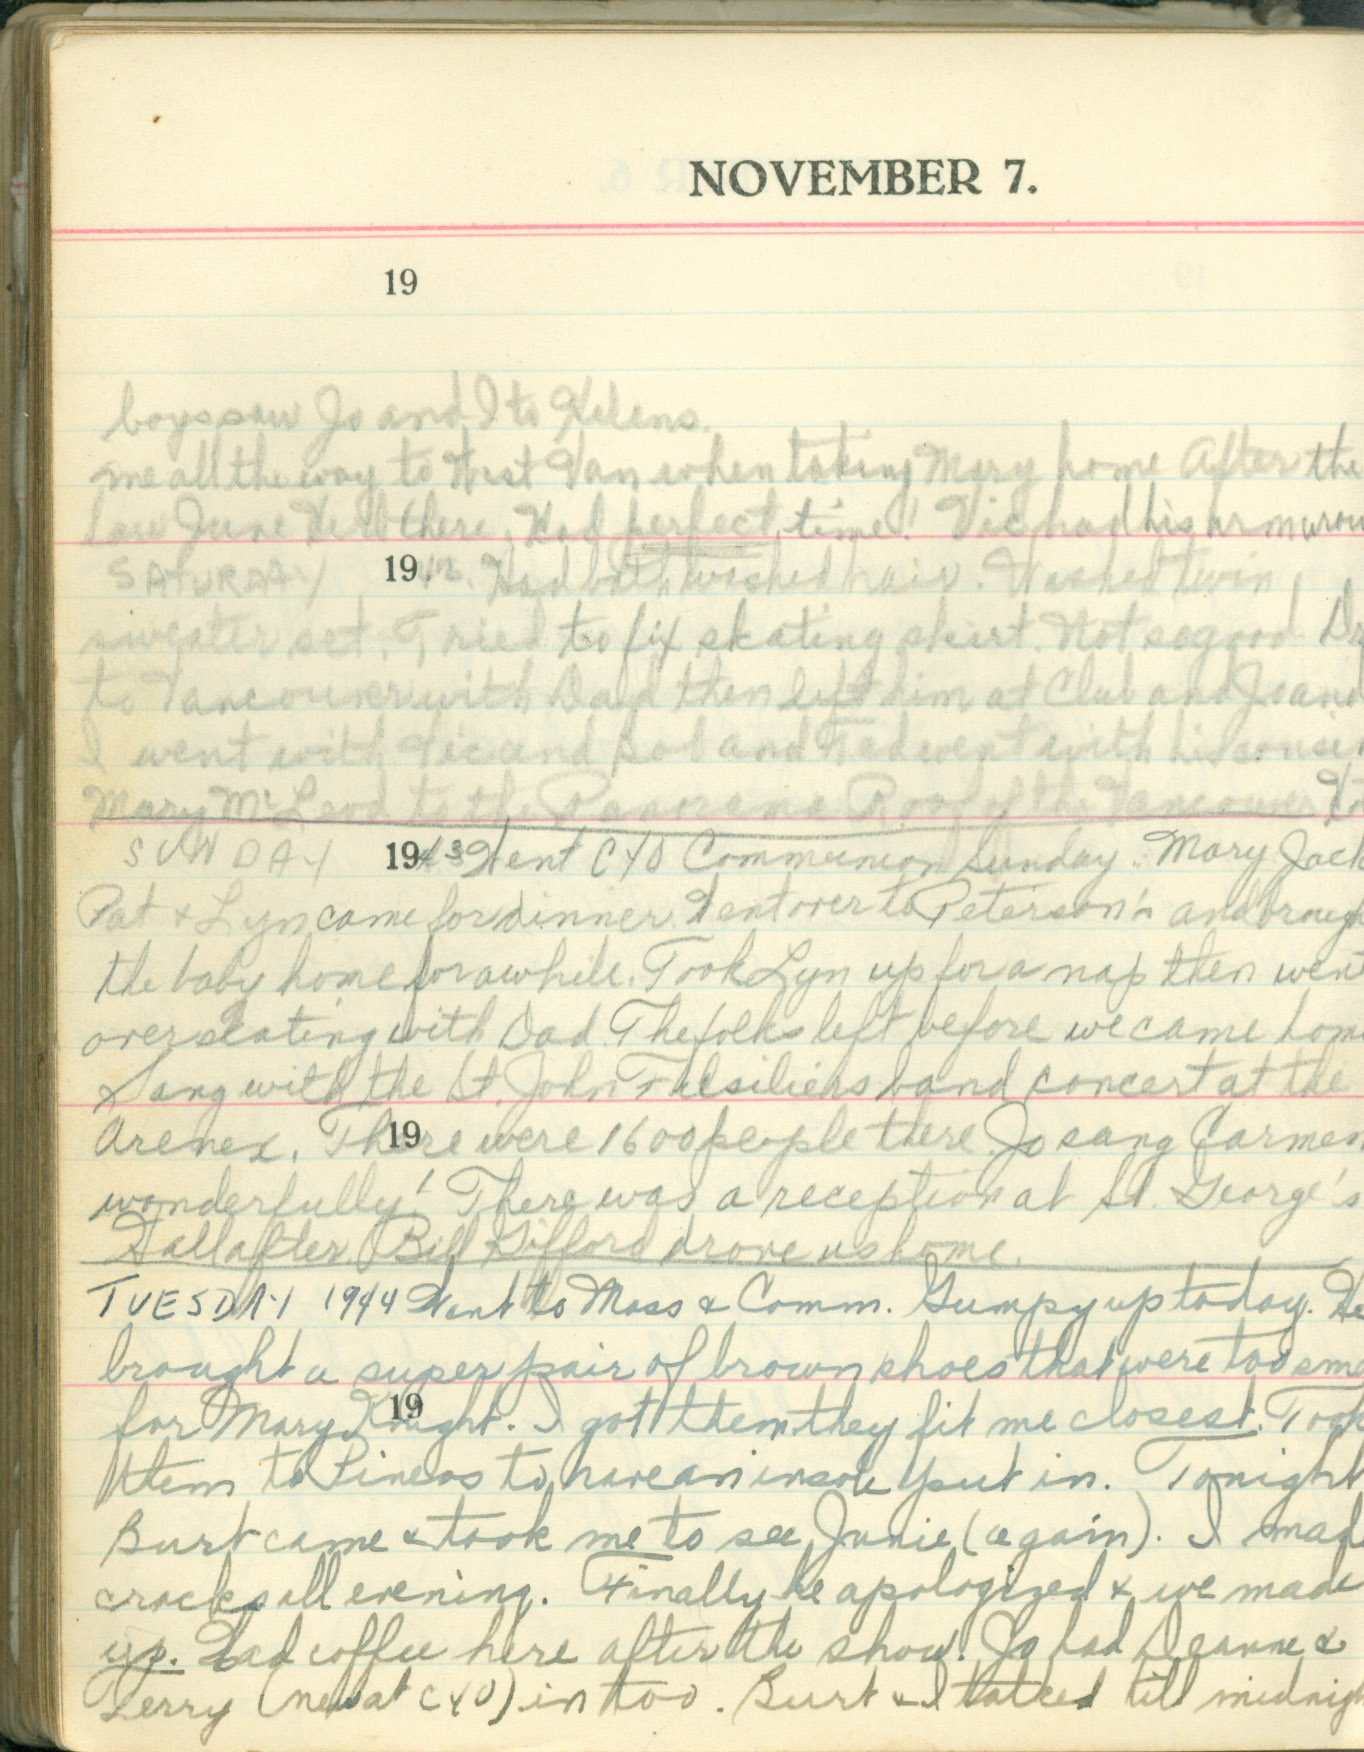 NOVEMBER 7.
19
boys saw Jo and I to Helens.
me all the way to West Van when taking Mary home After the
June there, Had perfect time! Vic had his
SATURDAY 1942. Had bath washed hair. Washed twin
sweater set. Tried to fix skating skirt. Not so good.
to Vancouver with Dad then left him at Club and Jo and
I went with Vic and Bob and Ted went with his cousin
Mary McLeod to the Panorama Roof of the Vancouver
SUNDAY 1943 Went CYO Communion Sunday. Mary Jack
Pat & Lyn came for dinner. Went over to Peterson's and
the baby home for awhile. Took Lyn up for a nap then went
over skating with Dad. The folks left before we came
Sang with the St. John band concert at the
Arenex. 19 There were 1600 people there. Jo sang Carmen
wonderfully! There was a reception at St. George's
Hall after. Bill Gifford drove us home.
TUESDAY 1944 Went to Mass & Comm. Gumpy up today. He
brought a super pair of brown shoes that were too
for Mary Knight. 19 I got them they fit me closest. Took
them to to have an insole put in. Tonight
Burt came & took me to see Junie (again). I made
cracks all evening. Finally he apologized & we made
up. Had coffee here after the show. Jo had Deanne &
Terry (new at CYO) in too. Burt & I talked till